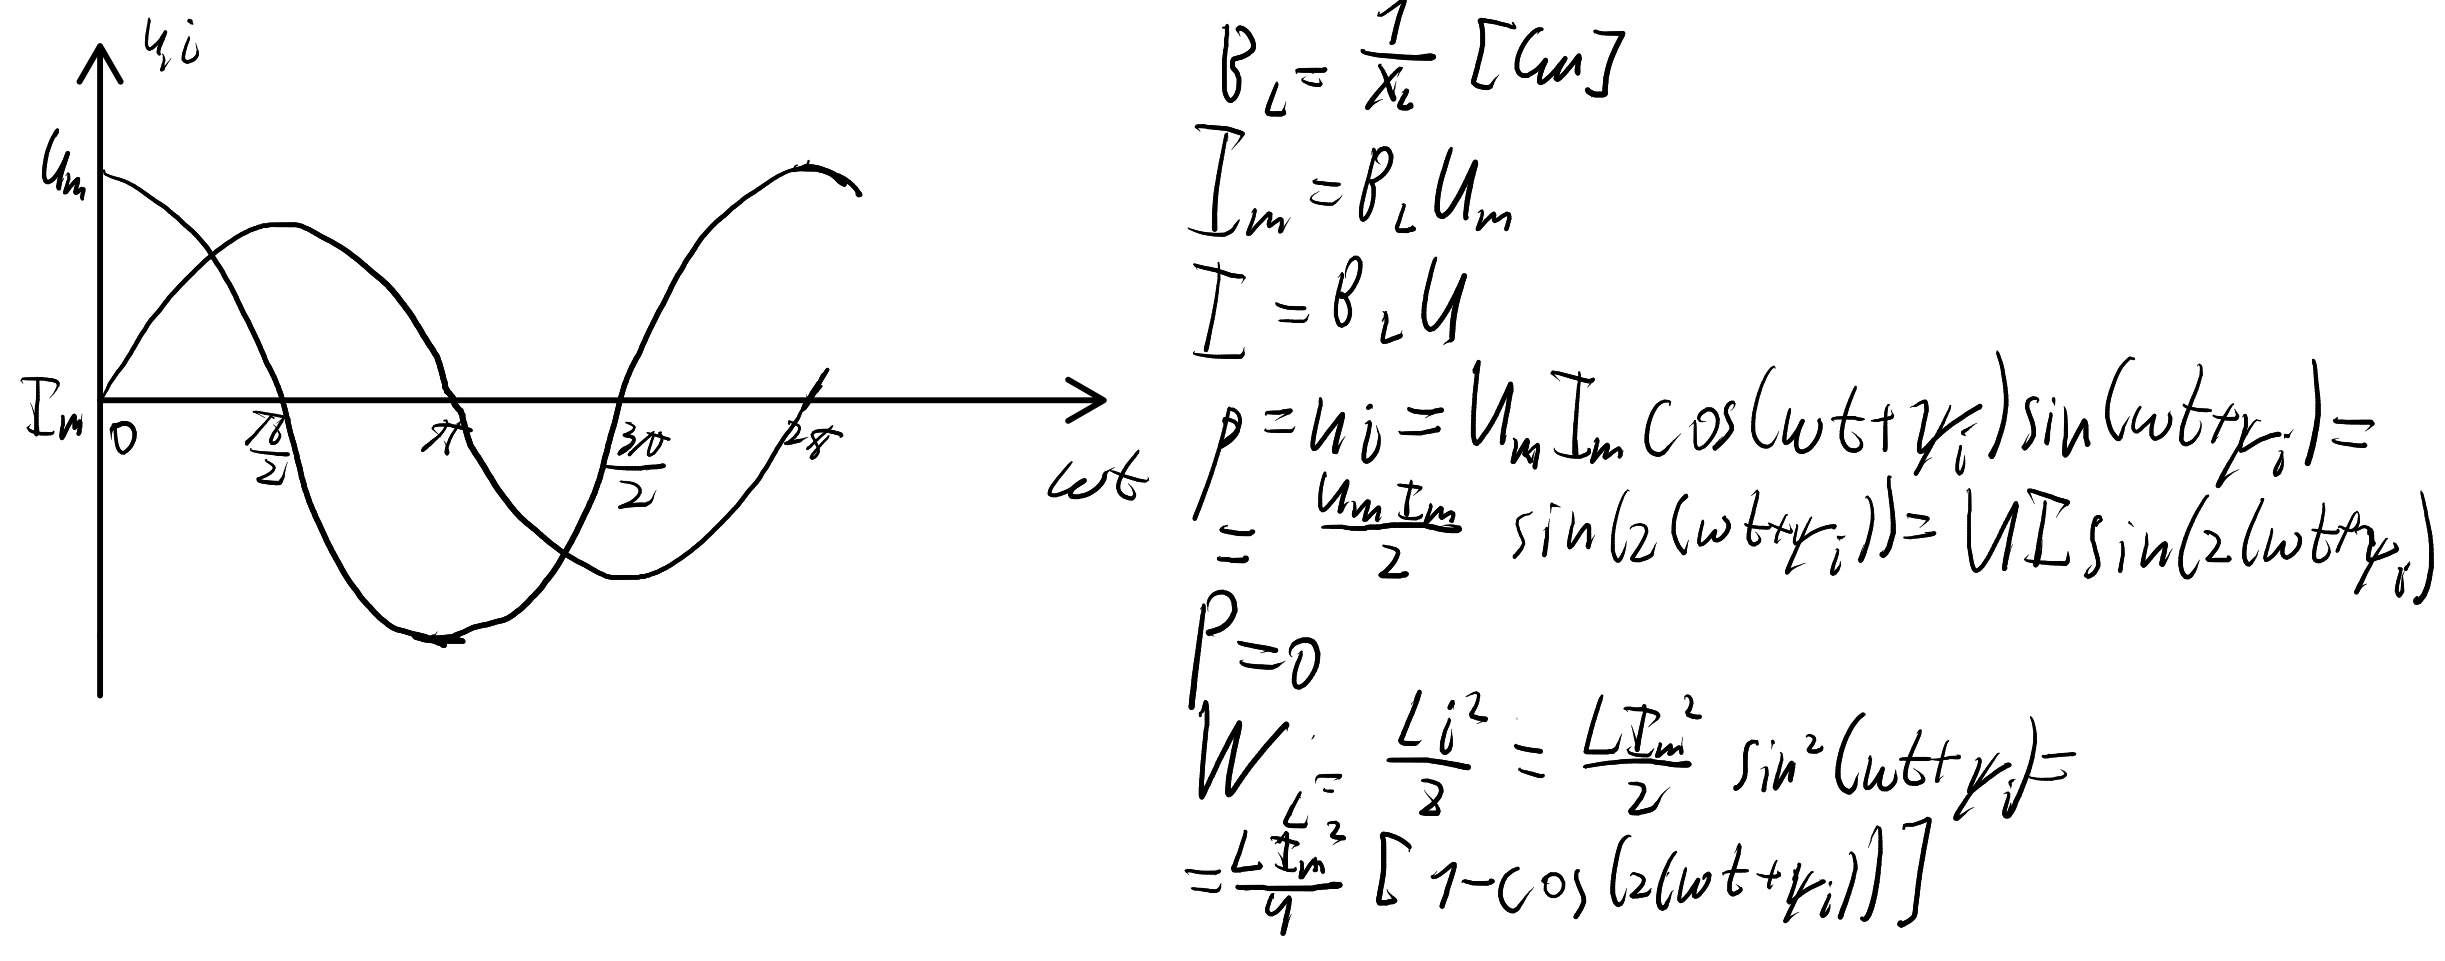 u,i
Um
Im
0
π/2
π
3π/2
2π
ωt
B_L = 1/x_L [См]
I_m = B_L U_m
I = B_L U
p = ui = U_m I_m cos(ωt+ψ_i) sin(ωt+ψ_i) =
= U_m I_m/2 sin(2(ωt+ψ_i)) = UI sin(2(ωt+ψ_i)
P=0
W_L = Li²/2 = LI_m²/2 sin²(ωt+ψ_i) =
= LI_m²/4 [1-cos(2(ωt+ψ_i))]